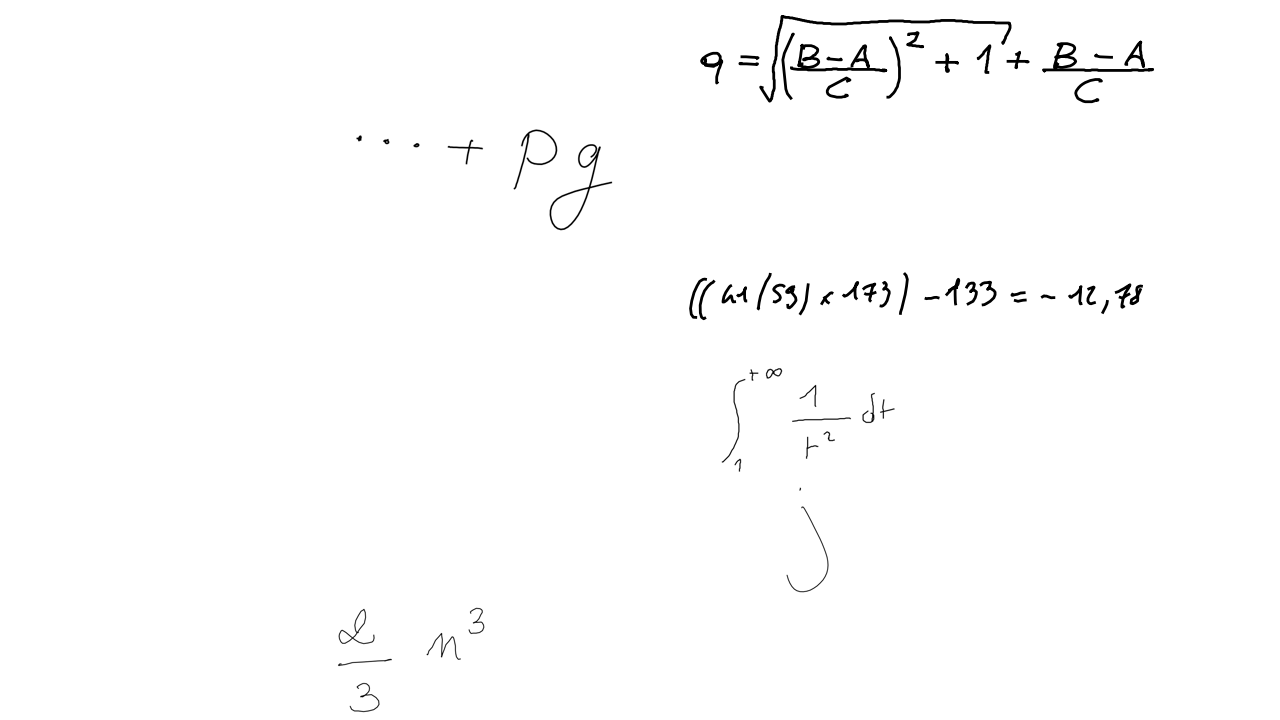 q = √((B-A)/C)² + 1) + (B-A)/C
... + pg
((41/59) × 173) - 133 = - 12,78
∫₁^{+∞} 1/t² dt
j
2/3 n³